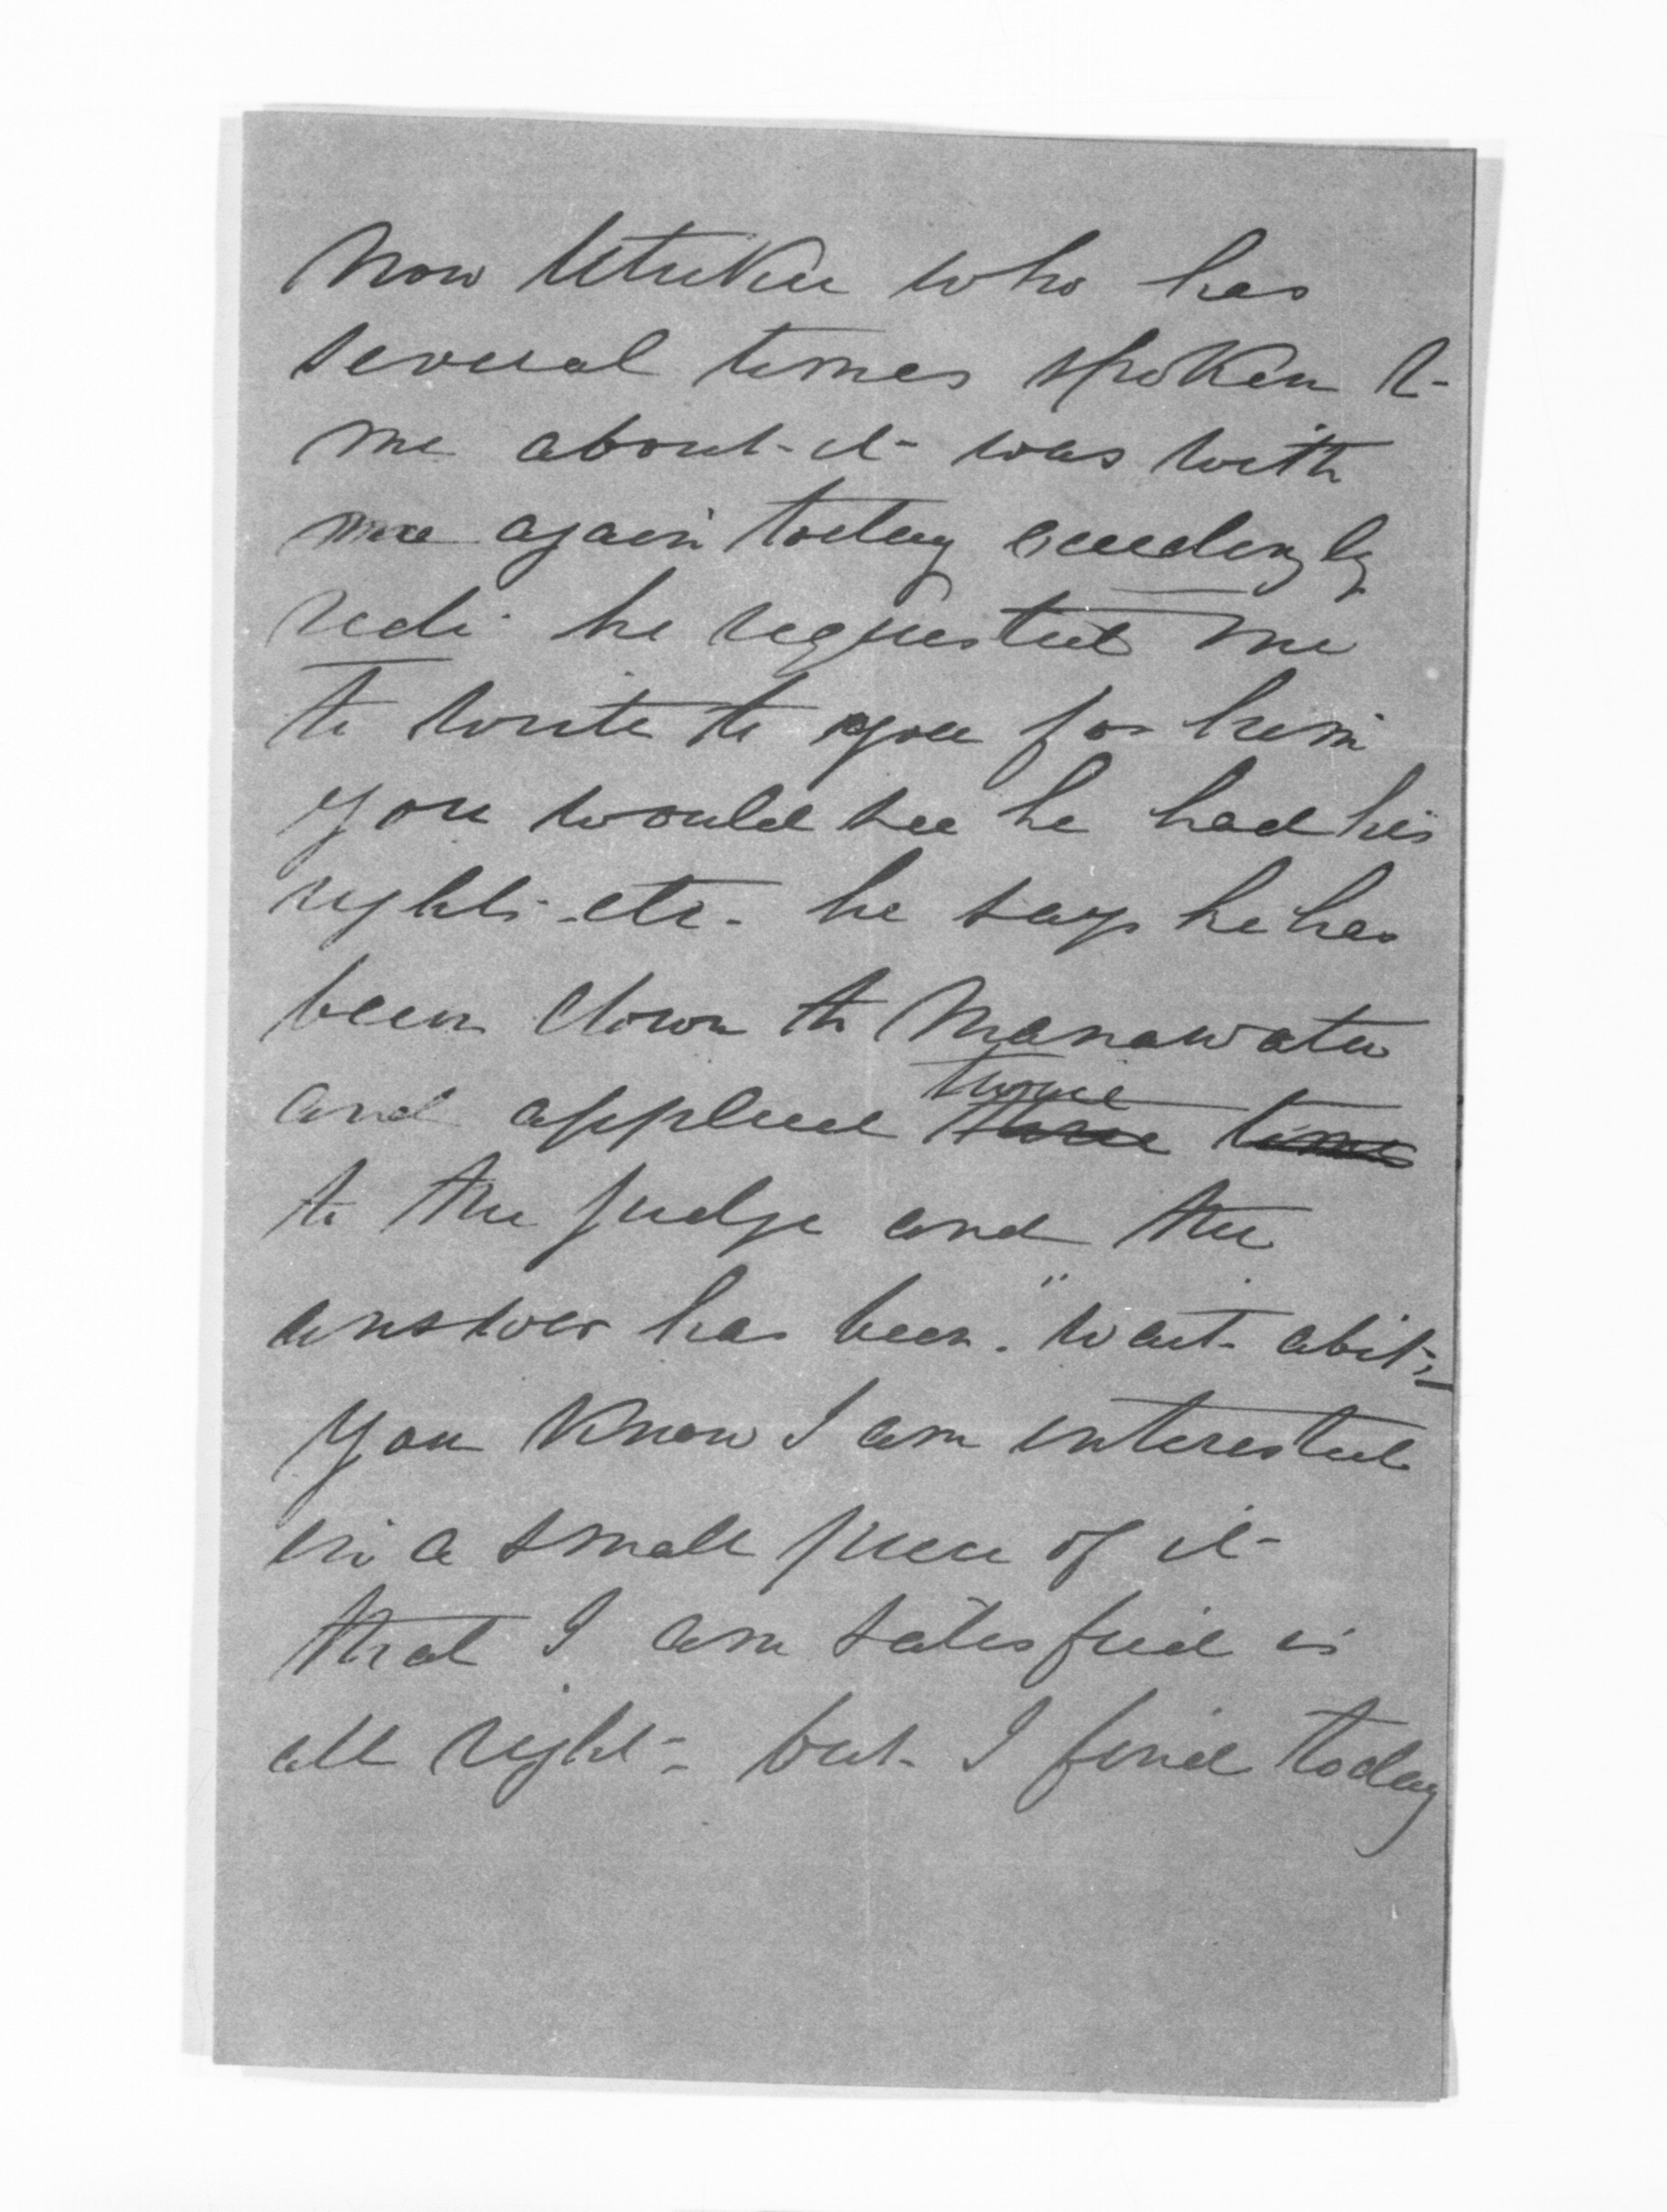 now Utiku who has
several times spoken to
me about it was with
me again today exceedingly
he requested me
to write to you for him
you would see he had his
rights etc. he says he has
been down to Manawatu
and applied twice
to the judge and the
answer has been. "wait abit"
You know I am interested
in a small piece of it
that I am satisfied is
all right - but I find today